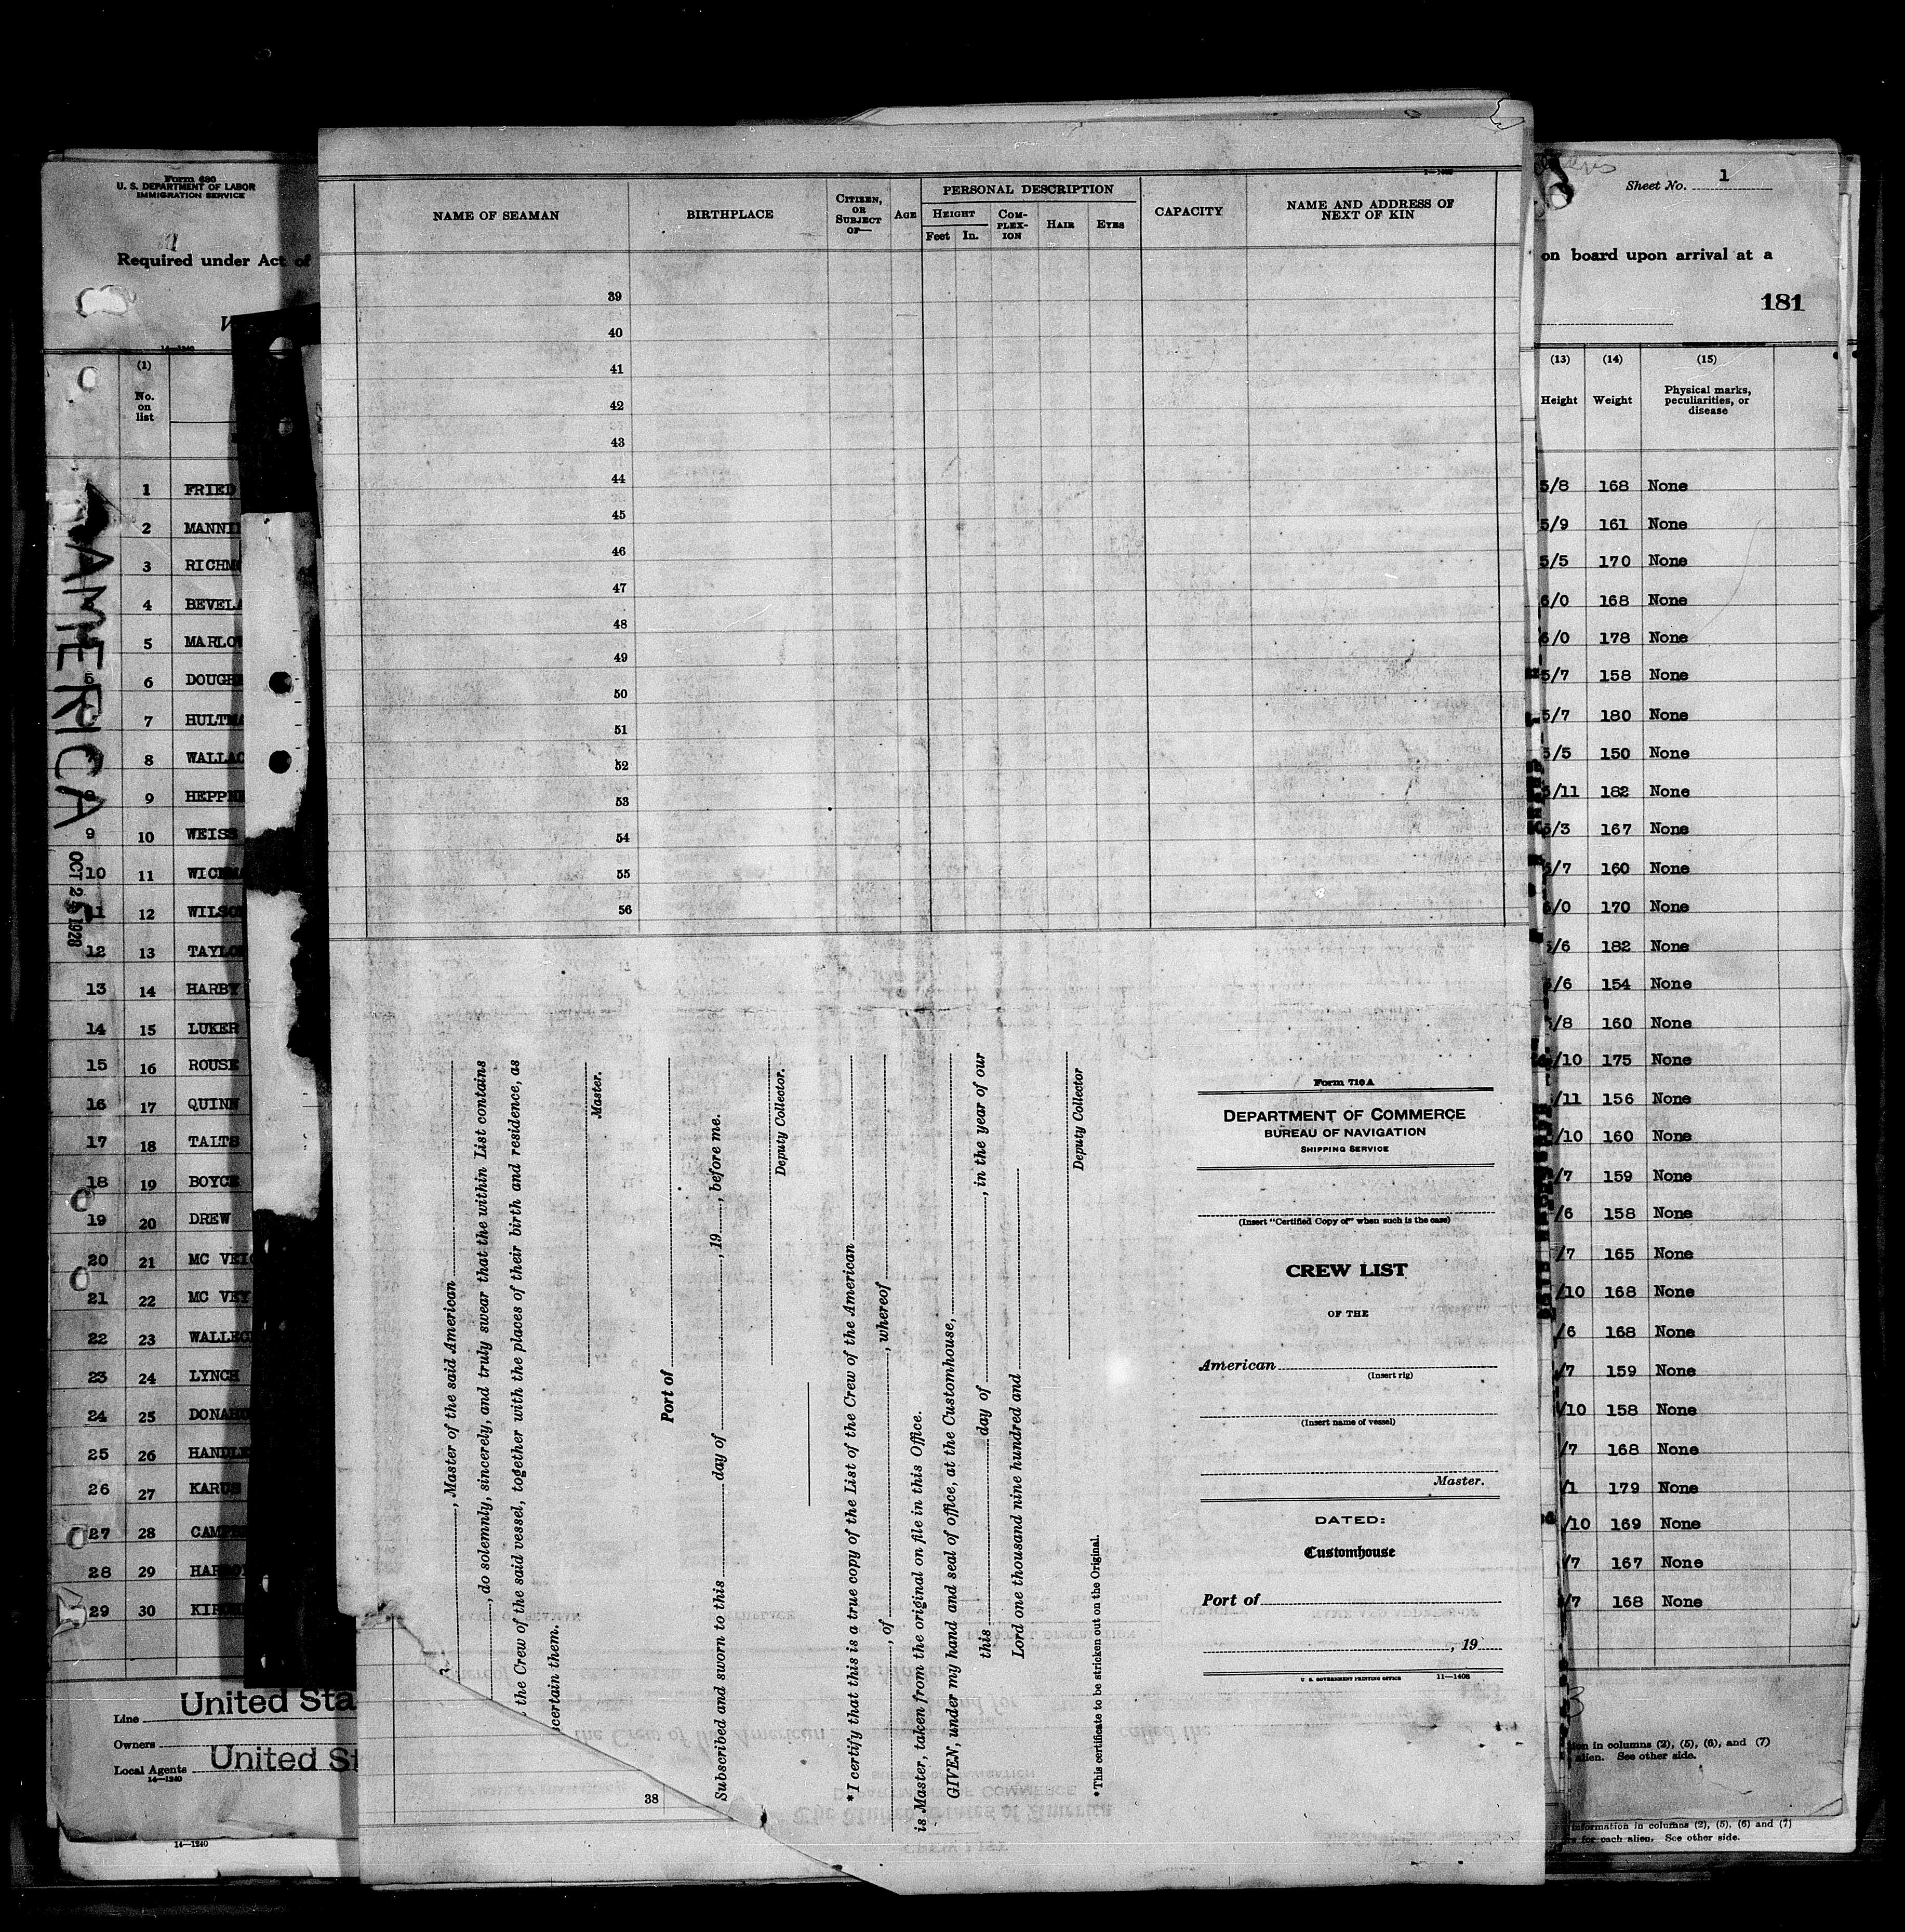 Form 680
U. S. DEPARTMENT OF LABOR
IMMIGRATION SERVICE
Required under Act of
14—1240
(1)
No.
on
list
1 FRIED
2 MANNI
3 RICHM
4 BEVELA
5 MARLOW
6 DOUGH
7 HULTMA
8 WALLAC
9 HEPPNE
9 10 WEISS
10 11 WICKMA
11 12 WILSON
12 13 TAYLOR
13 14 HARBY
14 15 LUKER
15 16 ROUSE
16 17 QUINN
17 18 TALTS
18 19 BOYCE
19 20 DREW
20 21 MC VEIG
21 22 MC VEY
22 23 WALLEC
23 24 LYNCH
24 25 DONAHU
25 26 HANDLE
26 27 KARUS
27 28 CAMP
28 29 HAR
29 30 KIR
AMERICA
OCT 25 1928
Line United Sta
Owners
Local Agents United St
14—1240
14—1240
NAME OF SEAMAN
BIRTHPLACE
CITIZEN,
OR
SUBJECT
OF—
AGE
PERSONAL DESCRIPTION
HEIGHT
Feet In.
COM-
PLEX-
ION
HAIR
EYES
CAPACITY
NAME AND ADDRESS OF
NEXT OF KIN
39
40
41
42
43
44
45
46
47
48
49
50
51
52
53
54
55
56
38
, Master of the said American
, do solemnly, sincerely, and truly swear that the within List contains
the Crew of the said vessel, together with the places of their birth and residence, as
certain them.
Master.
Port of
Subscribed and sworn to this day of , 19 , before me.
Deputy Collector.
* I certify that this is a true copy of the List of the Crew of the American
, of , whereof
is Master, taken from the original on file in this Office.
GIVEN, under my hand and seal of office, at the Customhouse,
this day of , in the year of our
Lord one thousand nine hundred and
Deputy Collector
* This certificate to be stricken out on the Original.
Form 710 A
DEPARTMENT OF COMMERCE
BUREAU OF NAVIGATION
SHIPPING SERVICE
(Insert "Certified Copy of" when such is the case)
CREW LIST
OF THE
American
(Insert rig)
(Insert name of vessel)
Master.
DATED:
Customhouse
Port of
, 19
U. S. GOVERNMENT PRINTING OFFICE 11—1408
Sheet No. 1
on board upon arrival at a
181
(13) (14) (15)
Height Weight Physical marks,
peculiarities, or
disease
5/8 168 None
5/9 161 None
5/5 170 None
6/0 168 None
6/0 178 None
5/7 158 None
5/7 180 None
5/5 150 None
5/11 182 None
5/3 167 None
5/7 160 None
6/0 170 None
5/6 182 None
/6 154 None
/8 160 None
/10 175 None
/11 156 None
/10 160 None
/7 159 None
/6 158 None
/7 165 None
/10 168 None
/6 168 None
/7 159 None
/10 158 None
/7 168 None
/1 179 None
/10 169 None
/7 167 None
/7 168 None
3
ion in columns (2), (5), (6), and (7)
alien. See other side.
information in columns (2), (5), (6) and (7)
for each alien. See other side.